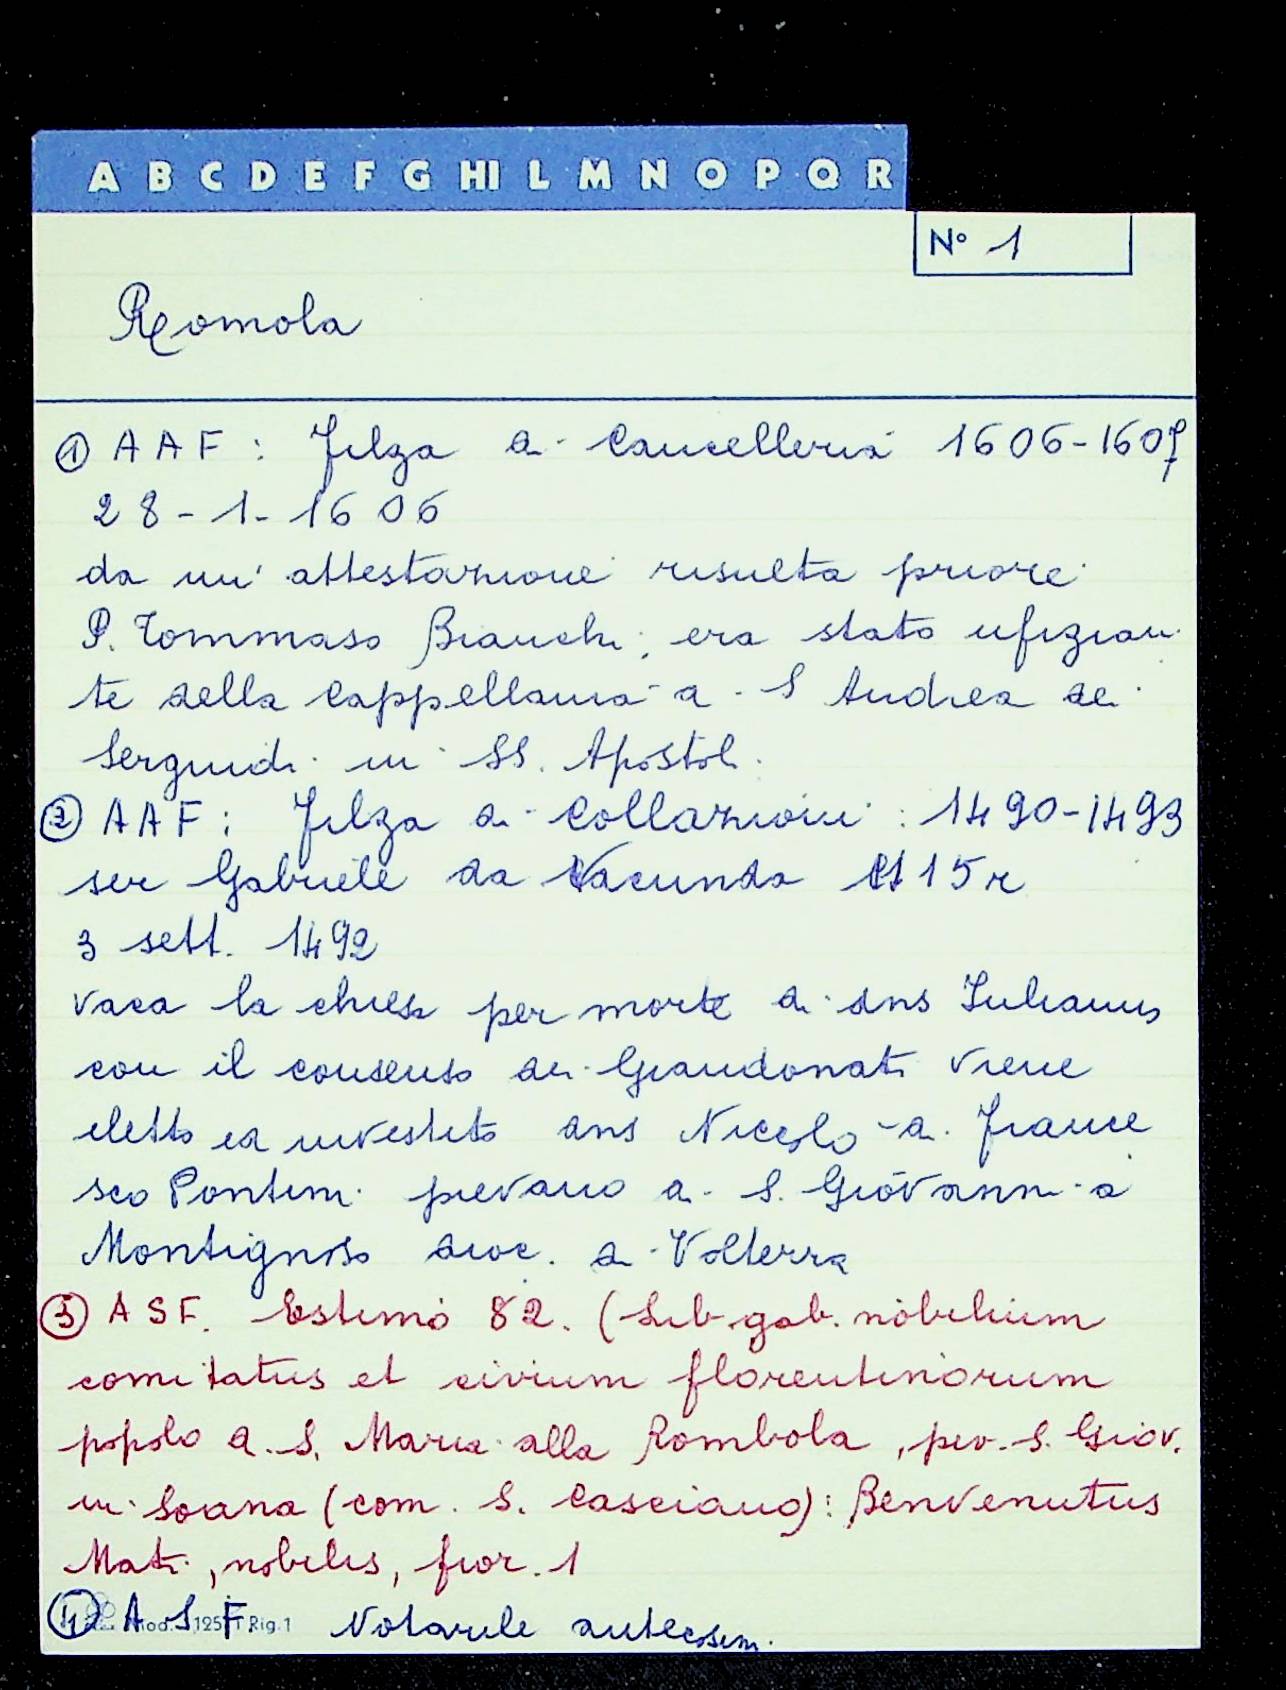 A B C D E F G HI L M N O P Q R
N° 1
Romola
① AAF: Filza di Cancelleria 1606-1607
28-1-1606
da un' attestazione risulta priore
P. Tommaso Bianchi; era stato ufizian
te della Cappellania di S Andrea dei
Serguidi in SS. Apostoli.
② AAF: Filza di Collazioni: 1490-1493
ser Gabriele da Vacunda 15r
3 sett. 1492
vaca la chiesa per morte di dns Iulianus
con il consenso dei Giandonati viene
eletto ed investito dns Niccolo di France
sco Pontini pievano di S. Giovanni a
Montignoso dioc. di Volterra
③ ASF. Estimo 82. (Lib. gab. nobilium
comitatus et civium florentinorum
popolo di S. Maria alla Rombola, piv. S. Giov.
in Soana (com. S. Casciano): Benvenutus
Mati, nobilis, fior. 1
④ A S F. Notarile antecosim.
Mod. 125 Rig. 1